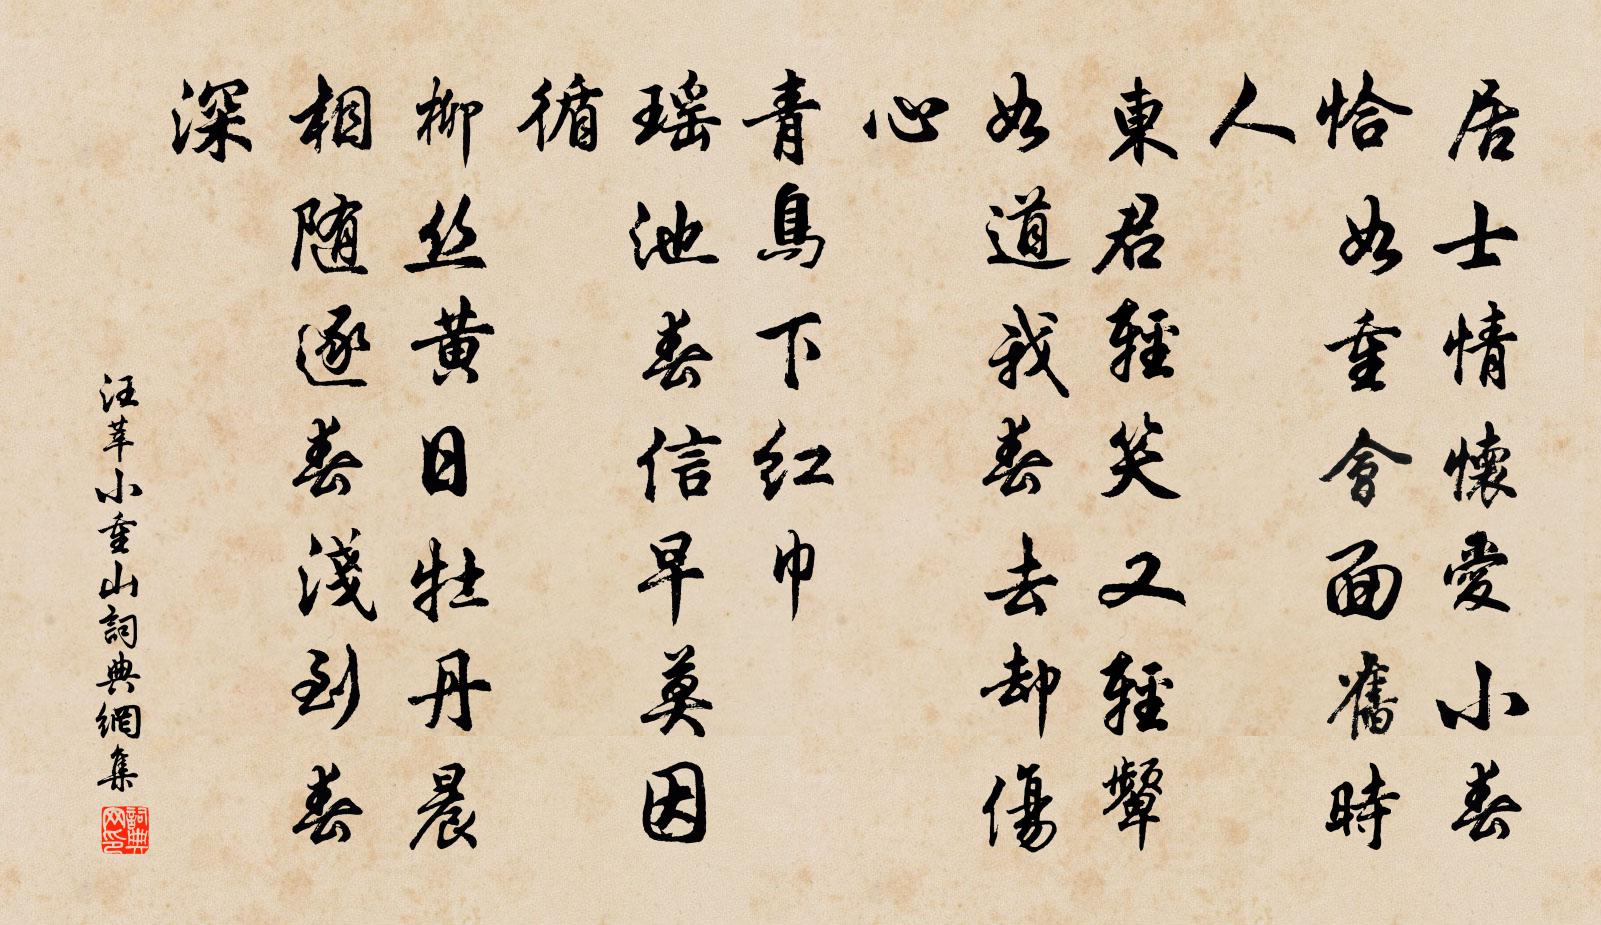 居士情懷愛小春
恰如重會面舊時
人
東君輕笑又輕顰
如道我春去却傷
心
青鳥下紅巾
瑶池春信早莫因
循
柳丝黄日牡丹晨
相随逐春淺到春
深
汪莘小重山詞典網集
詞典网印